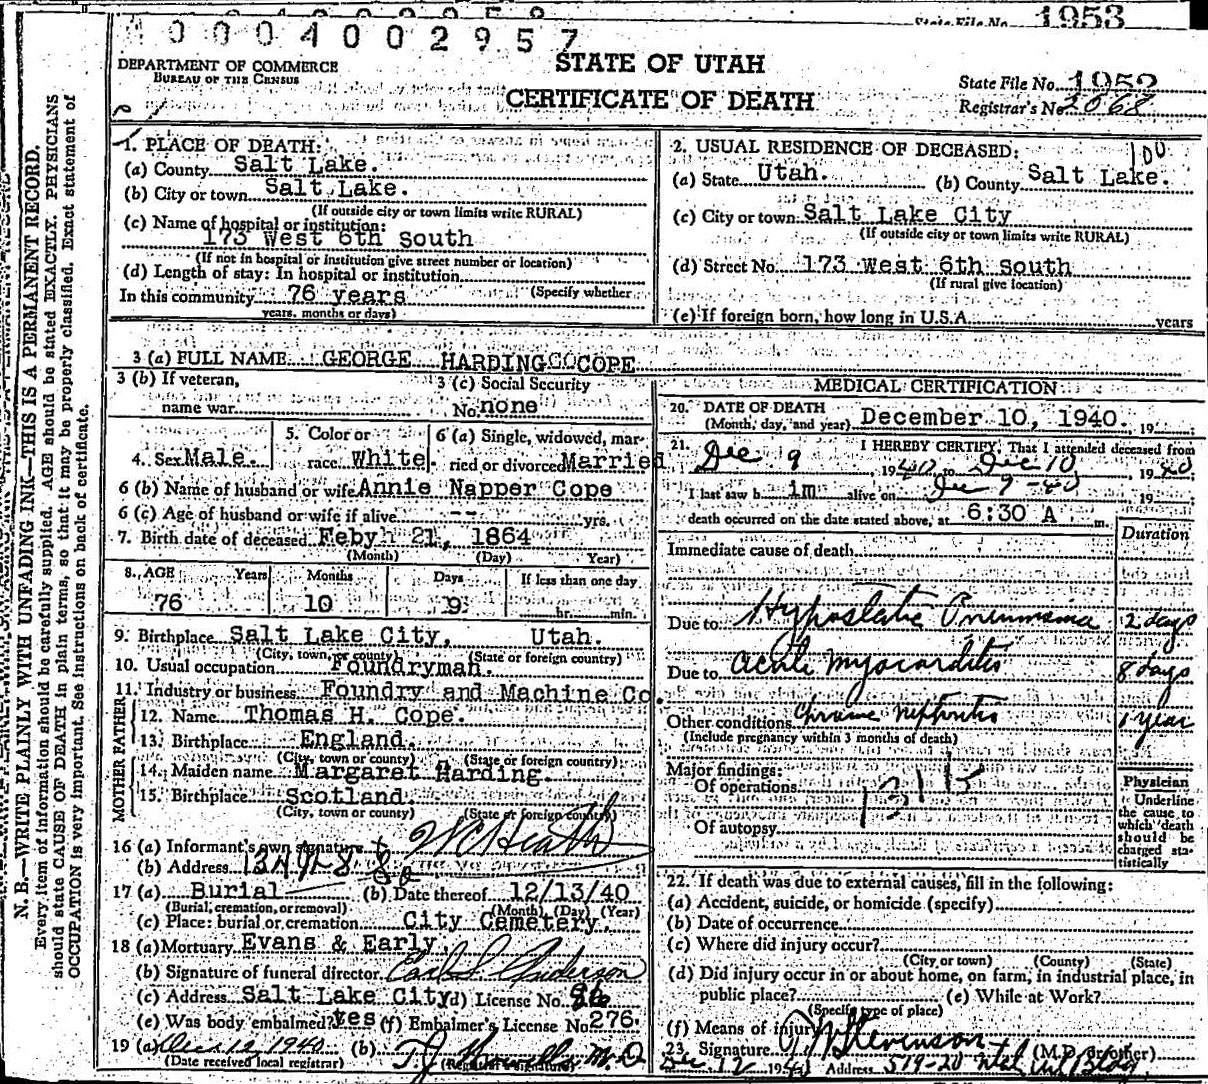 State File No. 1953
10004002957
STATE OF UTAH
CERTIFICATE OF DEATH
DEPARTMENT OF COMMERCE
BUREAU OF THE CENSUS
State File No. 1952
Registrar's No. 2068
N. B.—WRITE PLAINLY WITH UNFADING INK—THIS IS A PERMANENT RECORD.
Every item of information should be carefully supplied. AGE should be stated EXACTLY. PHYSICIANS
should state CAUSE OF DEATH in plain terms, so that it may be properly classified. Exact statement of
OCCUPATION is very important. See instructions on back of certificate.
1. PLACE OF DEATH:
(a) County Salt Lake.
(b) City or town Salt Lake.
(If outside city or town limits write RURAL)
(c) Name of hospital or institution:
173 West 6th South
(If not in hospital or institution give street number or location)
(d) Length of stay: In hospital or institution
(Specify whether
In this community 76 years
years, months or days)
2. USUAL RESIDENCE OF DECEASED: 100
(a) State Utah. (b) County Salt Lake.
(c) City or town Salt Lake City
(If outside city or town limits write RURAL)
(d) Street No. 173 West 6th South
(If rural give location)
(e) If foreign born, how long in U.S.A. years
3 (a) FULL NAME GEORGE HARDING COPE
3 (b) If veteran,
name war
3 (c) Social Security
No. none
4. Sex Male.
5. Color or
race White.
6 (a) Single, widowed, mar-
ried or divorced Married
6 (b) Name of husband or wife Annie Napper Cope
6 (c) Age of husband or wife if alive -- yrs.
7. Birth date of deceased Feby 21, 1864
(Month) (Day) Year)
8. AGE Years Months Days If less than one day
76 10 9 hr. min.
9. Birthplace Salt Lake City, Utah.
(City, town, or county) (State or foreign country)
10. Usual occupation Foundryman.
11. Industry or business Foundry and Machine Co.
FATHER
12. Name Thomas H. Cope.
13. Birthplace England.
(City, town or county) (State or foreign country)
MOTHER
14. Maiden name Margaret Harding.
15. Birthplace Scotland.
(City, town or county) (State or foreign country)
16 (a) Informant's own signature W C Heath
(b) Address
17 (a) Burial (b) Date thereof 12/13/40
(Burial, cremation, or removal) (Month) (Day) (Year)
(c) Place: burial or cremation City Cemetery.
18 (a) Mortuary Evans & Early.
(b) Signature of funeral director Earl S. Anderson
(c) Address Salt Lake City (d) License No. 86
(e) Was body embalmed? Yes (f) Embalmer's License No 276.
19 (a) Dec 12 1940 (b) T. J. Howells M.D.
(Date received local registrar) (Registrar's signature)
MEDICAL CERTIFICATION
20. DATE OF DEATH
(Month, day, and year) December 10, 1940. , 19 ;
21. I HEREBY CERTIFY, That I attended deceased from
Dec 9 , 1940 to Dec 10 , 1940
I last saw h im alive on Dec 9 - 40 , 19 ;
death occurred on the date stated above, at 6:30 A m.
Duration
Immediate cause of death
Due to Hypostatic Pneumonia 2 days
Due to acute myocarditis 8 days
Other conditions Chronic nephritis 1 year
(Include pregnancy within 3 months of death)
Major findings:
Of operations
Of autopsy
Physician
Underline
the cause to
which death
should be
charged sta-
tistically
22. If death was due to external causes, fill in the following:
(a) Accident, suicide, or homicide (specify)
(b) Date of occurrence
(c) Where did injury occur?
(City or town) (County) (State)
(d) Did injury occur in or about home, on farm, in industrial place, in
public place? (e) While at Work?
(Specify type of place)
(f) Means of injury
23. Signature J W Stevenson (M.D. or other)
Dec 12 1940 Address 519-20